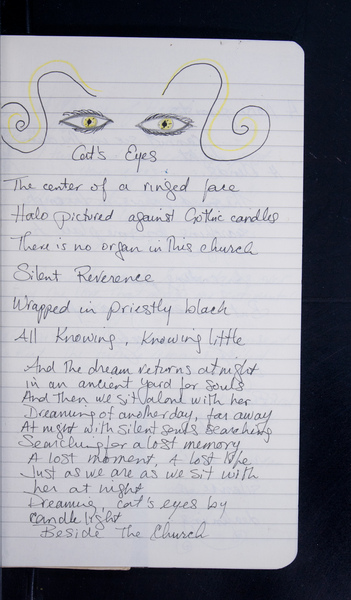 Cat's Eyes
The center of a ringed face
Halo pictured against Gothic candles
There is no organ in this church
Silent Reverence
Wrapped in priestly black
All Knowing, Knowing little
And the dream returns at night
in an ancient yard for souls
And then we sit alone with her
Dreaming of another day, far away
At night with silent souls searching
Searching for a lost memory
A lost moment, A lost life
Just as we are as we sit with
her at night
Dreaming, cat's eyes by
candle light
Beside The Church